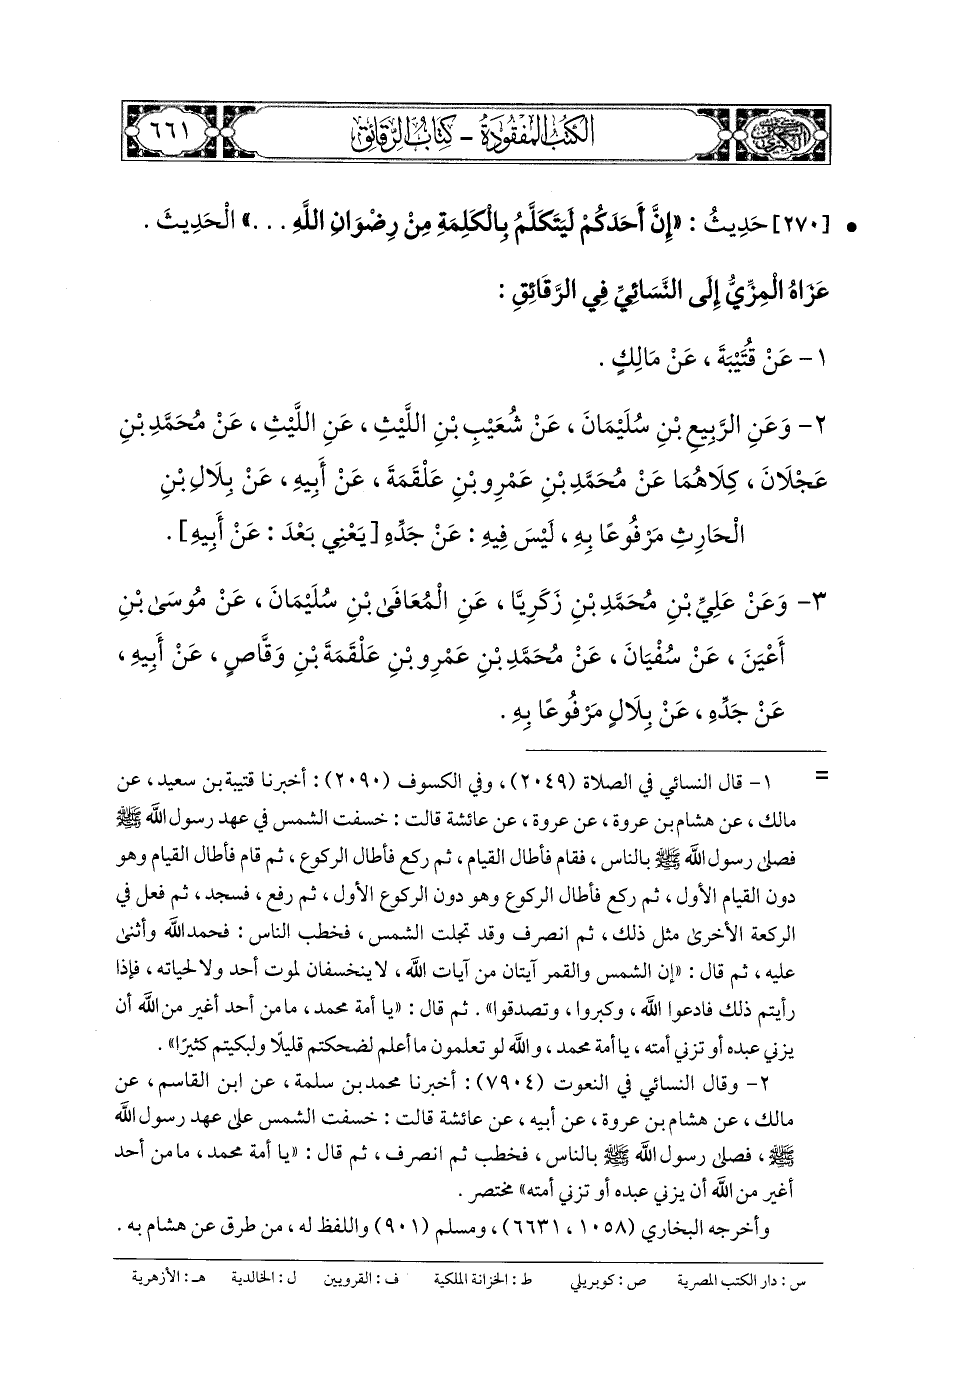 الكتب المفقودة - كتاب الرقائق
٦٦١
• [٢٧٠] حَدِيثُ : «إِنَّ أَحَدَكُمْ لَيَتَكَلَّمُ بِالْكَلِمَةِ مِنْ رِضْوَانِ اللَّهِ ...» الْحَدِيثَ .
عَزَاهُ الْمِزِّيُّ إِلَى النَّسَائِيِّ فِي الرَّقَائِقِ :
١- عَنْ قُتَيْبَةَ ، عَنْ مَالِكٍ .
٢- وَعَنِ الرَّبِيعِ بْنِ سُلَيْمَانَ ، عَنْ شُعَيْبِ بْنِ اللَّيْثِ ، عَنِ اللَّيْثِ ، عَنْ مُحَمَّدِ بْنِ
عَجْلَانَ ، كِلَاهُمَا عَنْ مُحَمَّدِ بْنِ عَمْرِو بْنِ عَلْقَمَةَ ، عَنْ أَبِيهِ ، عَنْ بِلَالِ بْنِ
الْحَارِثِ مَرْفُوعًا بِهِ ، لَيْسَ فِيهِ : عَنْ جَدِّهِ [يَعْنِي بَعْدَ : عَنْ أَبِيهِ] .
٣- وَعَنْ عَلِيِّ بْنِ مُحَمَّدِ بْنِ زَكَرِيَّا ، عَنِ الْمُعَافَىٰ بْنِ سُلَيْمَانَ ، عَنْ مُوسَىٰ بْنِ
أَعْيَنَ ، عَنْ سُفْيَانَ ، عَنْ مُحَمَّدِ بْنِ عَمْرِو بْنِ عَلْقَمَةَ بْنِ وَقَّاصٍ ، عَنْ أَبِيهِ ،
عَنْ جَدِّهِ ، عَنْ بِلَالٍ مَرْفُوعًا بِهِ .
= ١- قال النسائي في الصلاة (٢٠٤٩) ، وفي الكسوف (٢٠٩٠) : أخبرنا قتيبة بن سعيد ، عن
مالك ، عن هشام بن عروة ، عن عروة ، عن عائشة قالت : خسفت الشمس في عهد رسول الله ﷺ
فصلى رسول الله ﷺ بالناس ، فقام فأطال القيام ، ثم ركع فأطال الركوع ، ثم قام فأطال القيام وهو
دون القيام الأول ، ثم ركع فأطال الركوع وهو دون الركوع الأول ، ثم رفع ، فسجد ، ثم فعل في
الركعة الأخرىٰ مثل ذلك ، ثم انصرف وقد تجلت الشمس ، فخطب الناس : فحمد الله وأثنىٰ
عليه ، ثم قال : «إن الشمس والقمر آيتان من آيات الله ، لا ينخسفان لموت أحد ولا لحياته ، فإذا
رأيتم ذلك فادعوا الله ، وكبروا ، وتصدقوا» . ثم قال : «يا أمة محمد ، ما من أحد أغير من الله أن
يزني عبده أو تزني أمته ، يا أمة محمد ، والله لو تعلمون ما أعلم لضحكتم قليلًا ولبكيتم كثيرًا» .
٢- وقال النسائي في النعوت (٧٩٠٤) : أخبرنا محمد بن سلمة ، عن ابن القاسم ، عن
مالك ، عن هشام بن عروة ، عن أبيه ، عن عائشة قالت : خسفت الشمس علىٰ عهد رسول الله
ﷺ ، فصلى رسول الله ﷺ بالناس ، فخطب ثم انصرف ، ثم قال : «يا أمة محمد ، ما من أحد
أغير من الله أن يزني عبده أو تزني أمته» مختصر .
وأخرجه البخاري (١٠٥٨ ، ٦٦٣١) ، ومسلم (٩٠١) واللفظ له ، من طرق عن هشام به .
س : دار الكتب المصرية ص : كوبريلي ط : الخزانة الملكية ف : القرويين ل : الخالدية هـ : الأزهرية